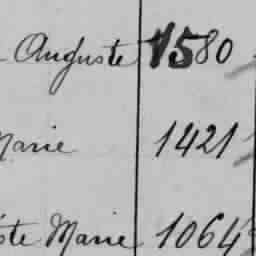 Auguste 1580
Marie 1421
Marie 1064